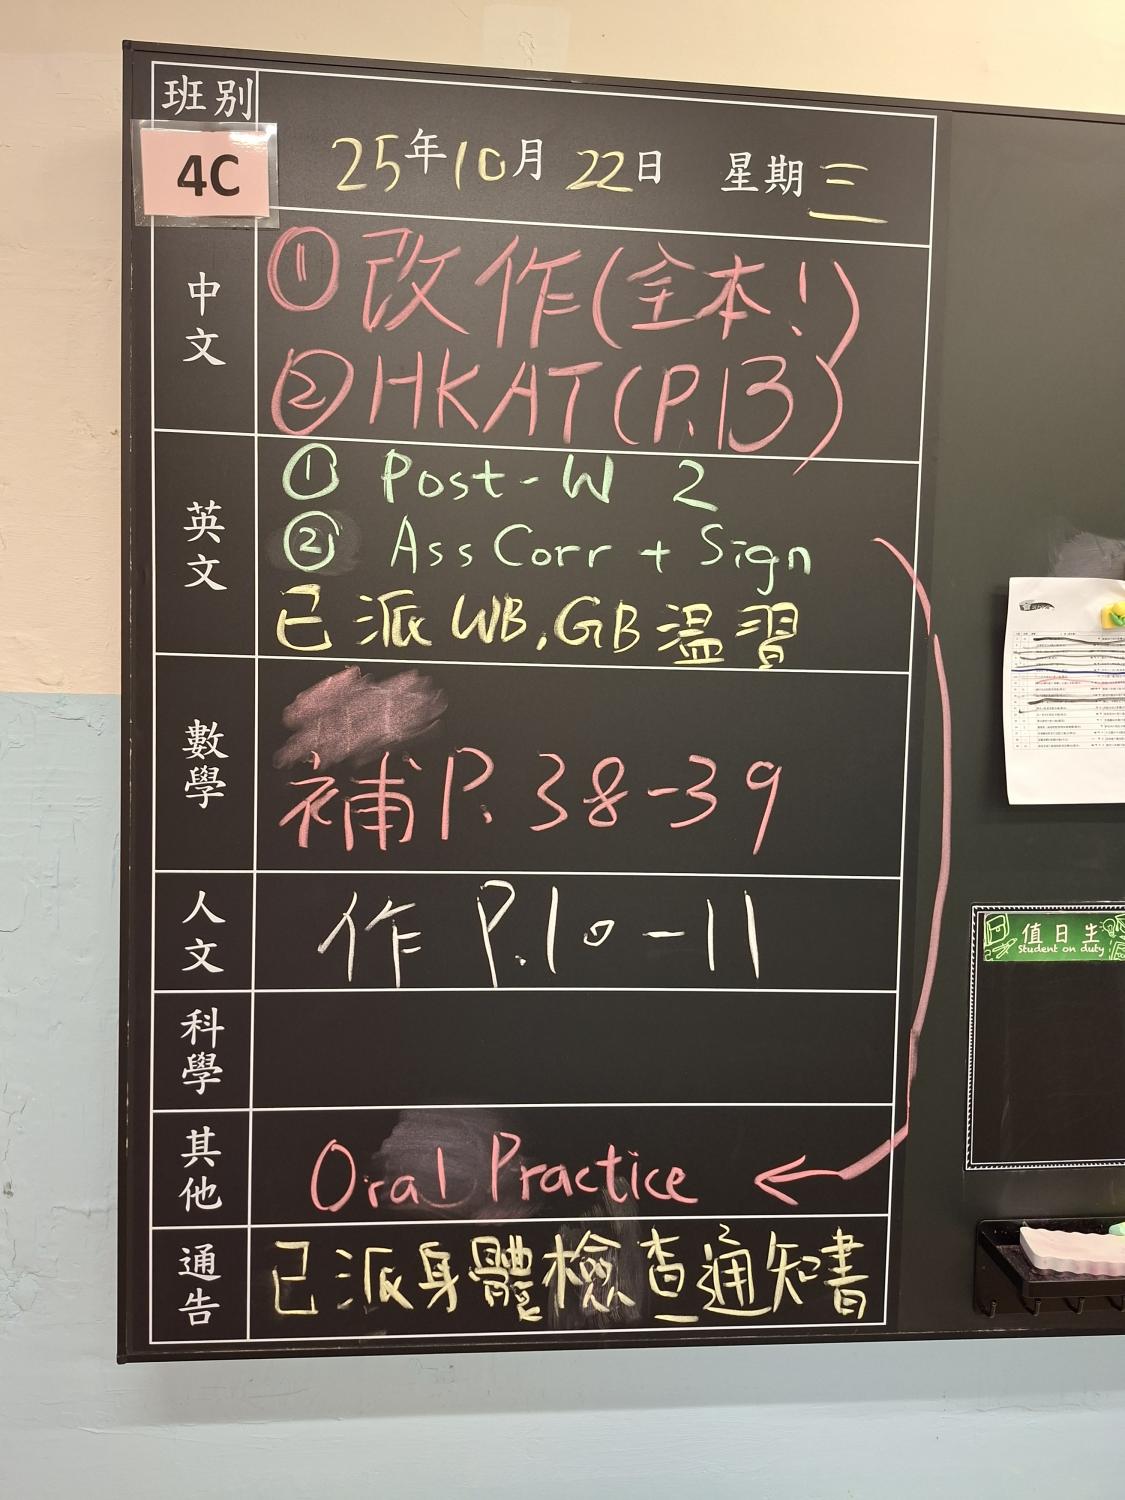 班別
4C
25年10月22日 星期三
中文
① 改作(全本!)
② HKAT (P.13)
英文
① Post-W 2
② Ass Corr + Sign
已派 WB, GB 溫習
數學
補 P. 38-39
人文
作 P.10-11
科學
其他
Oral Practice
通告
已派身體檢查通知書
值日生
Student on duty